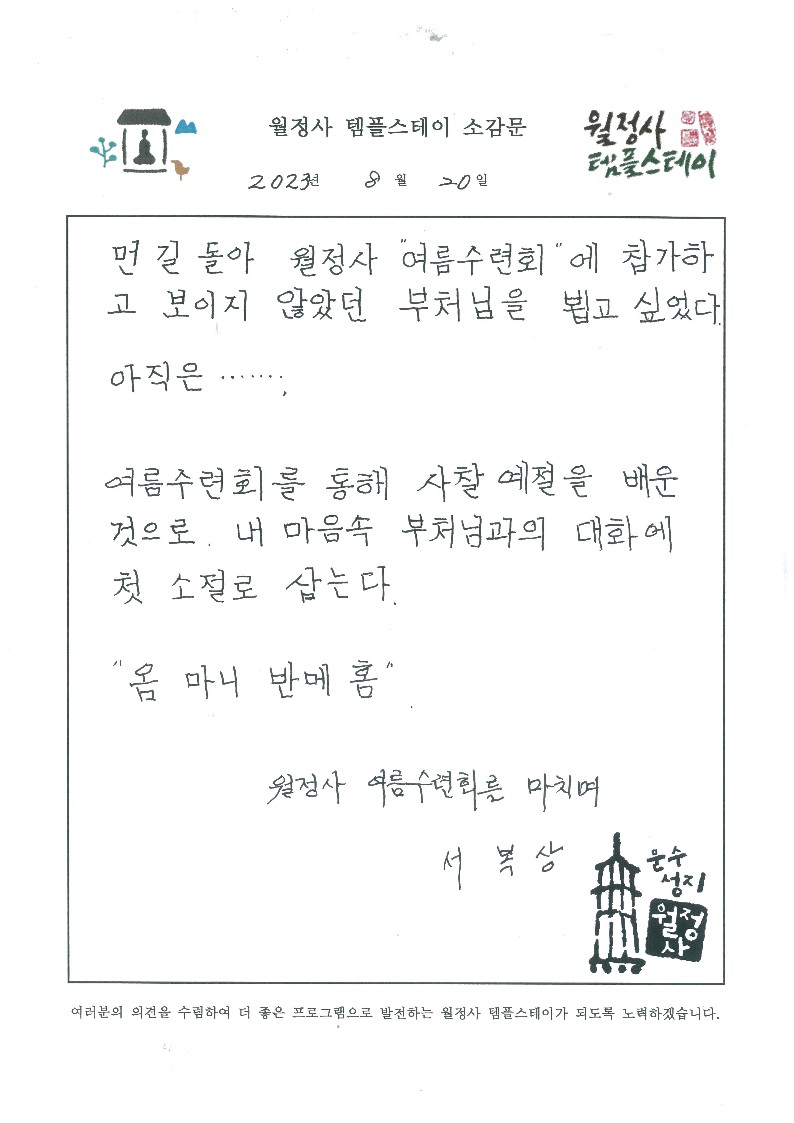 월정사 템플스테이 소감문
월정사
템플스테이
2023년 8월 20일
먼 길 돌아 월정사 "여름수련회"에 참가하
고 보이지 않았던 부처님을 뵙고 싶었다.
아직은 …….
여름수련회를 통해 사찰 예절을 배운
것으로. 내 마음속 부처님과의 대화에
첫 소절로 삼는다.
"옴 마니 반메 훔".
월정사 여름수련회를 마치며
서 복 상
문수
성지
월정
사
여러분의 의견을 수렴하여 더 좋은 프로그램으로 발전하는 월정사 템플스테이가 되도록 노력하겠습니다.